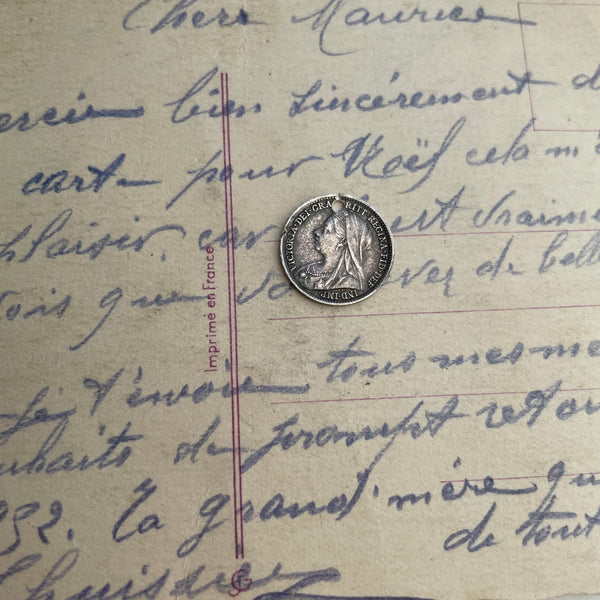 Chere Maurice
ercie bien sincérement d
carte pour Noël cela m'
plaisir, car est vraime
ois que vez de belle
Je t'envoie tous mes me
ouhaits de prompt retou
952. Ta grand'mère qu
de tout
Imprimé en France
VICTORIA·DEI·GRA·BRITT·REGINA·FID·DEF·IND·IMP·